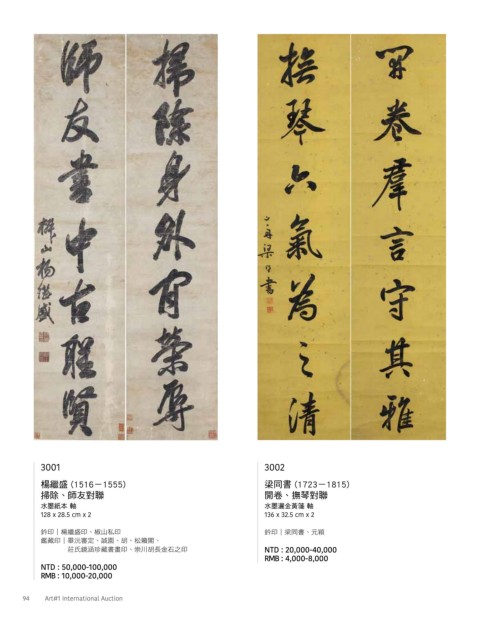 掃除身外閒榮辱
師友書中古聖賢
椒山楊繼盛
開卷羣言守其雅
撫琴六氣為之清
山舟梁同書
3001
楊繼盛 (1516－1555)
掃除、師友對聯
水墨紙本 軸
128 x 28.5 cm x 2
鈐印｜楊繼盛印、椒山私印
鑑藏印｜畢沅審定、誠園、胡、松竊閣、
莊氏鏡涵珍藏書畫印、崇川胡長金石之印
NTD : 50,000-100,000
RMB : 10,000-20,000
3002
梁同書 (1723－1815)
開卷、撫琴對聯
水墨灑金黃箋 軸
136 x 32.5 cm x 2
鈐印｜梁同書、元穎
NTD : 20,000-40,000
RMB : 4,000-8,000
94 Art#1 International Auction